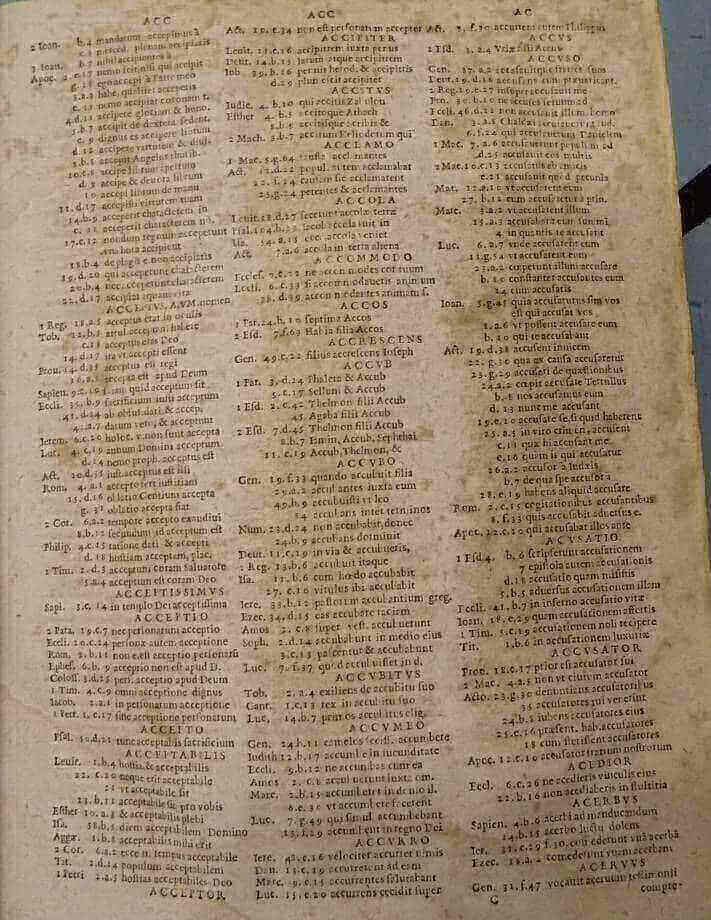 ACC
2 Ioan. b.4 mandatum accepimus à
e.8 mercéd. plenam accipiatis
3 Ioan. b.7 nihil accipientes à
Apoc. 2.e.17 nemo scit nisi qui accipit
g.28 ego accepi à Patre meo
3.a.3 habe, qualiter acceperis
c.11 nemo accipiat coronam t.
4.d.11 accipere gloriam & hono.
5.b.7 accipit de dextera sedent.
c. 9 dignus es accipere librum
d.12 accipere virtutem & diui.
8.b.5 accepit Angelus thurib.
10.c.8 accipe librum apertum
d.9 accipe & deuora librum
10 accepi librum de manu
11.d.17 accepisti virtutem tuam
14.b.9 acceperit characterem in
c. 11 acceperit characterem n.
17.c.12 nondum regnum acceperunt
vna hora accipient
18.b.4 de plagis e. non accipiatis
19.d.20 qui acceperunt characterem
20.b.4 nec acceperunt characterem
22.d.17 accipiat aquam vitæ
ACCEPTVS, A,VM, nomen
1 Reg. 18.a.5 acceptus erat in oculis
Tob. 12.b.5 acceptus eras Deo
14.d.17 ita vt accepti essent
Prou. 14.d.35 acceptus est regi
accepta est apud Deum
Sapien. 9.c.12 quid acceptum sit
Eccli. 35.b.9 sacrificium iusti acceptum
41.d.24 ab oblat. dati & accep.
42.a.7 datum vero, & acceptum
Ierem. 6.c.20 holoc. v. non sunt accepta
Luc. 4.c.19 annum Domini acceptum
d.24 nemo proph. acceptus est
Act. 10.d.35 iust. acceptus est illi
Rom. 4.a.1 accepto fert iustitiam
15.d.16 oblatio Gentium accepta
g.31 oblatio accepta fiat
2 Cor. 6.a.2 tempore accepto exaudiui
8.b.12 secundum id acceptum est
Philip. 4.c.15 ratione dati & accepti
d.18 hostiam acceptam, plac.
1 Tim. 2.a.3 acceptum coram Saluatore
5.a.4 acceptum est coram Deo
ACCEPTISSIMVS
Sapi. 3.c.14 in templo Dei acceptissima
ACCEPTIO
2 Para. 19.c.7 nec personarum acceptio
Eccli. 20.c.24 personæ autem acceptione
Rom. 2.b.11 non est acceptio personarum
Ephes. 6.b.9 acceptio non est apud D.
Coloss. 3.d.25 pers. acceptio apud Deum
1 Tim. 4.c.9 omni acceptione dignus
Iacob. 2.a.1 in personarum acceptione
1 Petr. 1.c.17 sine acceptione personarum
ACCEITO
Psal. 50.d.21 tunc acceptabis sacrificium
ACCEITABILIS
Leuit. 1.b.4 hostia & acceptabilis
22.c.20 neque erit acceptabile
25 vt acceptabile sit
23.b.11 acceptabile sit pro vobis
Esther 10.a.3 & acceptabilis plebi
Isa. 58.b.5 diem acceptabilem Domino
Aggæ. 1.b.8 acceptabilis mihi erit
2 Cor. 6.a.2 ecce n. tempus acceptabile
Tit. 2.d.14 populum acceptabilem
1 Petri 2.a.5 hostias acceptabiles Deo
ACCEPTOR
ACC
Act. 10.e.34 non est personarum acceptor
ACCIPITER
Leuit. 11.c.16 accipitrem iuxta genus
Deut. 14.b.15 larum atque accipitrem
Iob 39.b.16 pennis herod. & accipitris
d.29 plumescit accipiter
ACCITVS
Iudic. 4.b.10 qui accitis Zabulon
Esther 4.b.5 accitoque Athach
8.b.9 accitisque scribis &
2 Mach. 3.b.7 accitum Heliodorum qui
ACCLAMO
1 Mac. 5.g.64 fausta acclamantes
Act. 12.d.22 popul. autem acclamabat
22.f.24 causam sic acclamarent
25.g.24 petentes & acclamantes
ACCOLA
Leuit. 18.d.27 fecerunt accolæ terræ
Psal. 104.b.23 Iacob accola fuit in
Isa. 54.d.15 ecce accola veniet
Act. 7.a.6 accola in terra aliena
ACCOMMODO
Eccles. 7.c.22 ne accommodes cor tuum
Eccli. 6.d.33 si accommodaueris animum
38.d.39 accommodantes animam s.
ACCOS
1 Par. 24.b.10 septima Accos
2 Esd. 7.f.63 Habia filia Accos
ACCRESCENS
Gen. 49.e.22 filius accrescens Ioseph
ACCVB
1 Par. 3.d.24 Phaleia & Accub
9.c.17 Sellum & Accub
1 Esd. 2.c.42 Thelmon filii Accub
45 Agaba filii Accub
2 Esd. 7.d.45 Thelmon filii Accub
8.b.7 Emin, Accub, Sephthai
11.c.19 Accub, Thelmon, &
ACCVBO
Gen. 19.f.33 quando accubuit filia
29.a.2 accubantes iuxta eum
49.b.9 accubuisti vt leo
24 accubans inter terminos
Num. 23.d.24 non accubabit, donec
24.b.9 accubans dormiuit
Deut. 11.c.19 in via & accubueris,
2 Reg. 13.b.6 accubuit itaque
Isa. 11.b.6 cum hœdo accubabit
27.c.10 vitulus ibi accubabit
Iere. 33.b.12 pastorum accubantium greg.
Ezec. 34.d.15 eas accubare faciam
Amos 2.c.8 super vest. accubuerunt
Soph. 2.d.14 accubabunt in medio eius
3.c.13 pascentur & accubabunt
Luc. 7.f.37 quod accubuisset in d.
ACCVBITVS
Tob. 2.a.4 exiliens de accubitu suo
Cant. 1.c.13 rex in accubitu suo
Luc. 14.b.7 primos accubitus elig.
ACCVMBO
Gen. 24.b.11 camelos fecisset accumbere
Iudith 12.b.17 accumbe in iucunditate
Eccli. 9.b.12 ne accumbas cum ea
Amos 2.c.8 accubuerunt iuxta om.
Marc. 2.b.15 accumberet in domo il.
6.e.39 vt accumbere facerent
Luc. 7.g.49 qui simul accumbebant
13.f.29 accumbent in regno Dei
ACCVRRO
Iere. 48.c.16 velociter accurret nimis
Dan. 13.c.19 accurrerunt ad eam
Marc. 9.c.15 accurrentes salutabant
Luc. 15.c.20 accurrens cecidit super
AC
Act. 8.f.30 accurrens autem Philippus
ACCVS
2 Esd. 3.a.4 Vriæ filii Accus
ACCVSO
Gen. 37.a.2 accusauitque fratres suos
Deut. 19.d.18 accusans eum præuaricat.
2 Reg. 19.e.27 insuper accusauit me
Prou. 30.b.10 ne accuses seruum ad
Eccli. 46.d.22 non accusauit illum homo
Dan. 3.a.8 Chaldæi accusauerunt Iud.
6.f.24 qui accusauerunt Danielem
1 Mac. 7.a.6 accusauerunt populum ad
d.25 accusauit eos multis
2 Mac. 10.c.13 accusatus ab amicis
e.21 accusauit quod pecunia
Mat. 12.a.10 vt accusarent eum
27.b.12 cum accusaretur à prin.
Marc. 3.a.2 vt accusarent illum
15.a.3 accusabant eum summi
4 in quantis te accusant
Luc. 6.a.7 vnde accusarent eum
11.g.54 vt accusarent eum
23.a.2 cœperunt illum accusare
b.10 constanter accusantes eum
14 eum accusatis
Ioan. 5.g.45 quia accusaturus sim vos
est qui accusat vos
8.a.6 vt possent accusare eum
b.10 qui te accusabant
Act. 19.d.38 accusent inuicem
22.g.30 qua ex causa accusaretur
23.g.29 accusari de quæstionibus
24.a.2 cœpit accusare Tertullus
b.8 nos accusamus eum
d.13 nunc me accusant
19.e.20 accusare se, si quid haberent
25.a.5 in viro crimen, accusent
c.11 quæ hi accusant me
c.16 quam is qui accusatur
26.a.2 accusor à Iudæis
b.7 de qua spe accusor a
28.e.19 habens aliquid accusare
Rom. 2.c.15 cogitationibus accusantibus
8.f.33 quis accusabit aduersus e.
Apoc. 12.c.10 qui accusabat illos ante
ACCVSATIO
1 Esd. 4. b.6 scripserunt accusationem
7 epistola autem accusationis
d.18 accusatio quam misistis
5.b.5 aduersus accusationem illam
Eccli. 41.b.7 in inferno accusatio vitæ
Ioan. 18.e.29 quam accusationem affertis
1 Tim. 5.c.19 accusationem noli recipere
Tit. 1.b.6 in accusationem luxuriæ
ACCVSATOR
Prou. 18.c.17 prior est accusator sui
2 Mac. 4.a.5 non vt ciuium accusator
Acto. 23.g.30 denuntians accusatoribus
35 accusatores tui venerint
24.b.8 iubens accusatores eius
25.c.16 præsent. hab. accusatores
18 cum stetissent accusatores
Apoc. 12.c.10 accusator fratrum nostrorum
ACEDIOR
Eccl. 6.c.26 ne acedieris vinculis eius
22.b.16 non acediaberis in stultitia
ACERBVS
Sapien. 4.b.6 acerbi ad manducandum
14.b.15 acerbo luctu dolens
Ier. 31.e.29 f.30. com ederunt vuā acerbā
Ezec. 18.a.2 comederunt vuam acerbam
ACERVVS
Gen. 31.f.47 vocauit aceruum testimonii
G
compre-